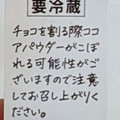 要冷蔵
チョコを割る際ココ
アパウダーがこぼ
れる可能性がご
ざいますので注意
してお召し上がりく
ださい。